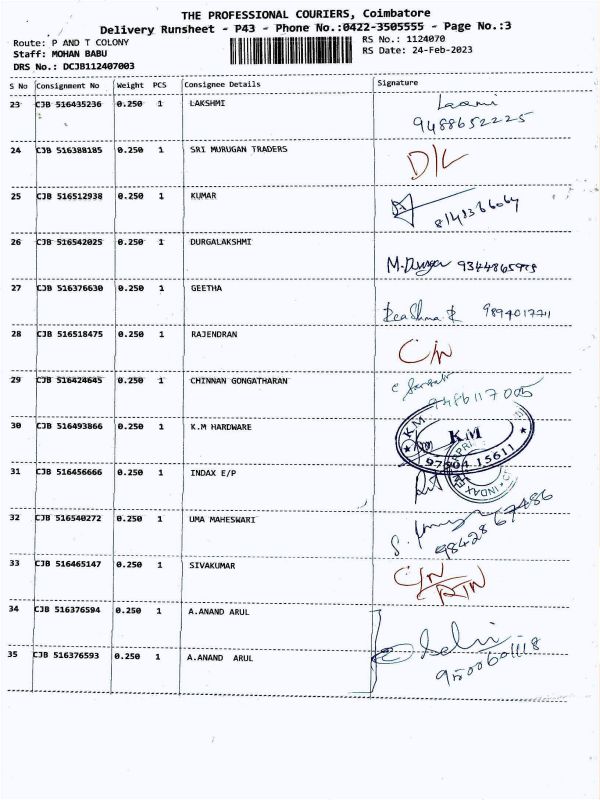 THE PROFESSIONAL COURIERS, Coimbatore
Delivery Runsheet - P43 - Phone No.:0422-3505555 - Page No.:3
Route: P AND T COLONY RS No.: 1124070
Staff: MOHAN BABU RS Date: 24-Feb-2023
DRS No.: DCJB112407003
S No Consignment No Weight PCS Consignee Details Signature
23 CJB 516435236 0.250 1 LAKSHMI
9488652225
24 CJB 516388185 0.250 1 SRI MURUGAN TRADERS D/L
25 CJB 516512938 0.250 1 KUMAR
26 CJB 516542025 0.250 1 DURGALAKSHMI
M.Durga
27 CJB 516376630 0.250 1 GEETHA
28 CJB 516518475 0.250 1 RAJENDRAN C/N
29 CJB 516424645 0.250 1 CHINNAN GONGATHARAN
9486117005
30 CJB 516493866 0.250 1 K.M HARDWARE
KM
97904 15611
31 CJB 516456666 0.250 1 INDAX E/P
INDAX
32 CJB 516540272 0.250 1 UMA MAHESWARI
9842867486
33 CJB 516465147 0.250 1 SIVAKUMAR C/N
RTN
34 CJB 516376594 0.250 1 A.ANAND ARUL
35 CJB 516376593 0.250 1 A.ANAND ARUL